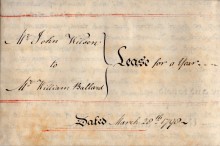 Mr. John Wilson
to
Mr. William Ballard
Lease for a Year
Dated March 28th 1798